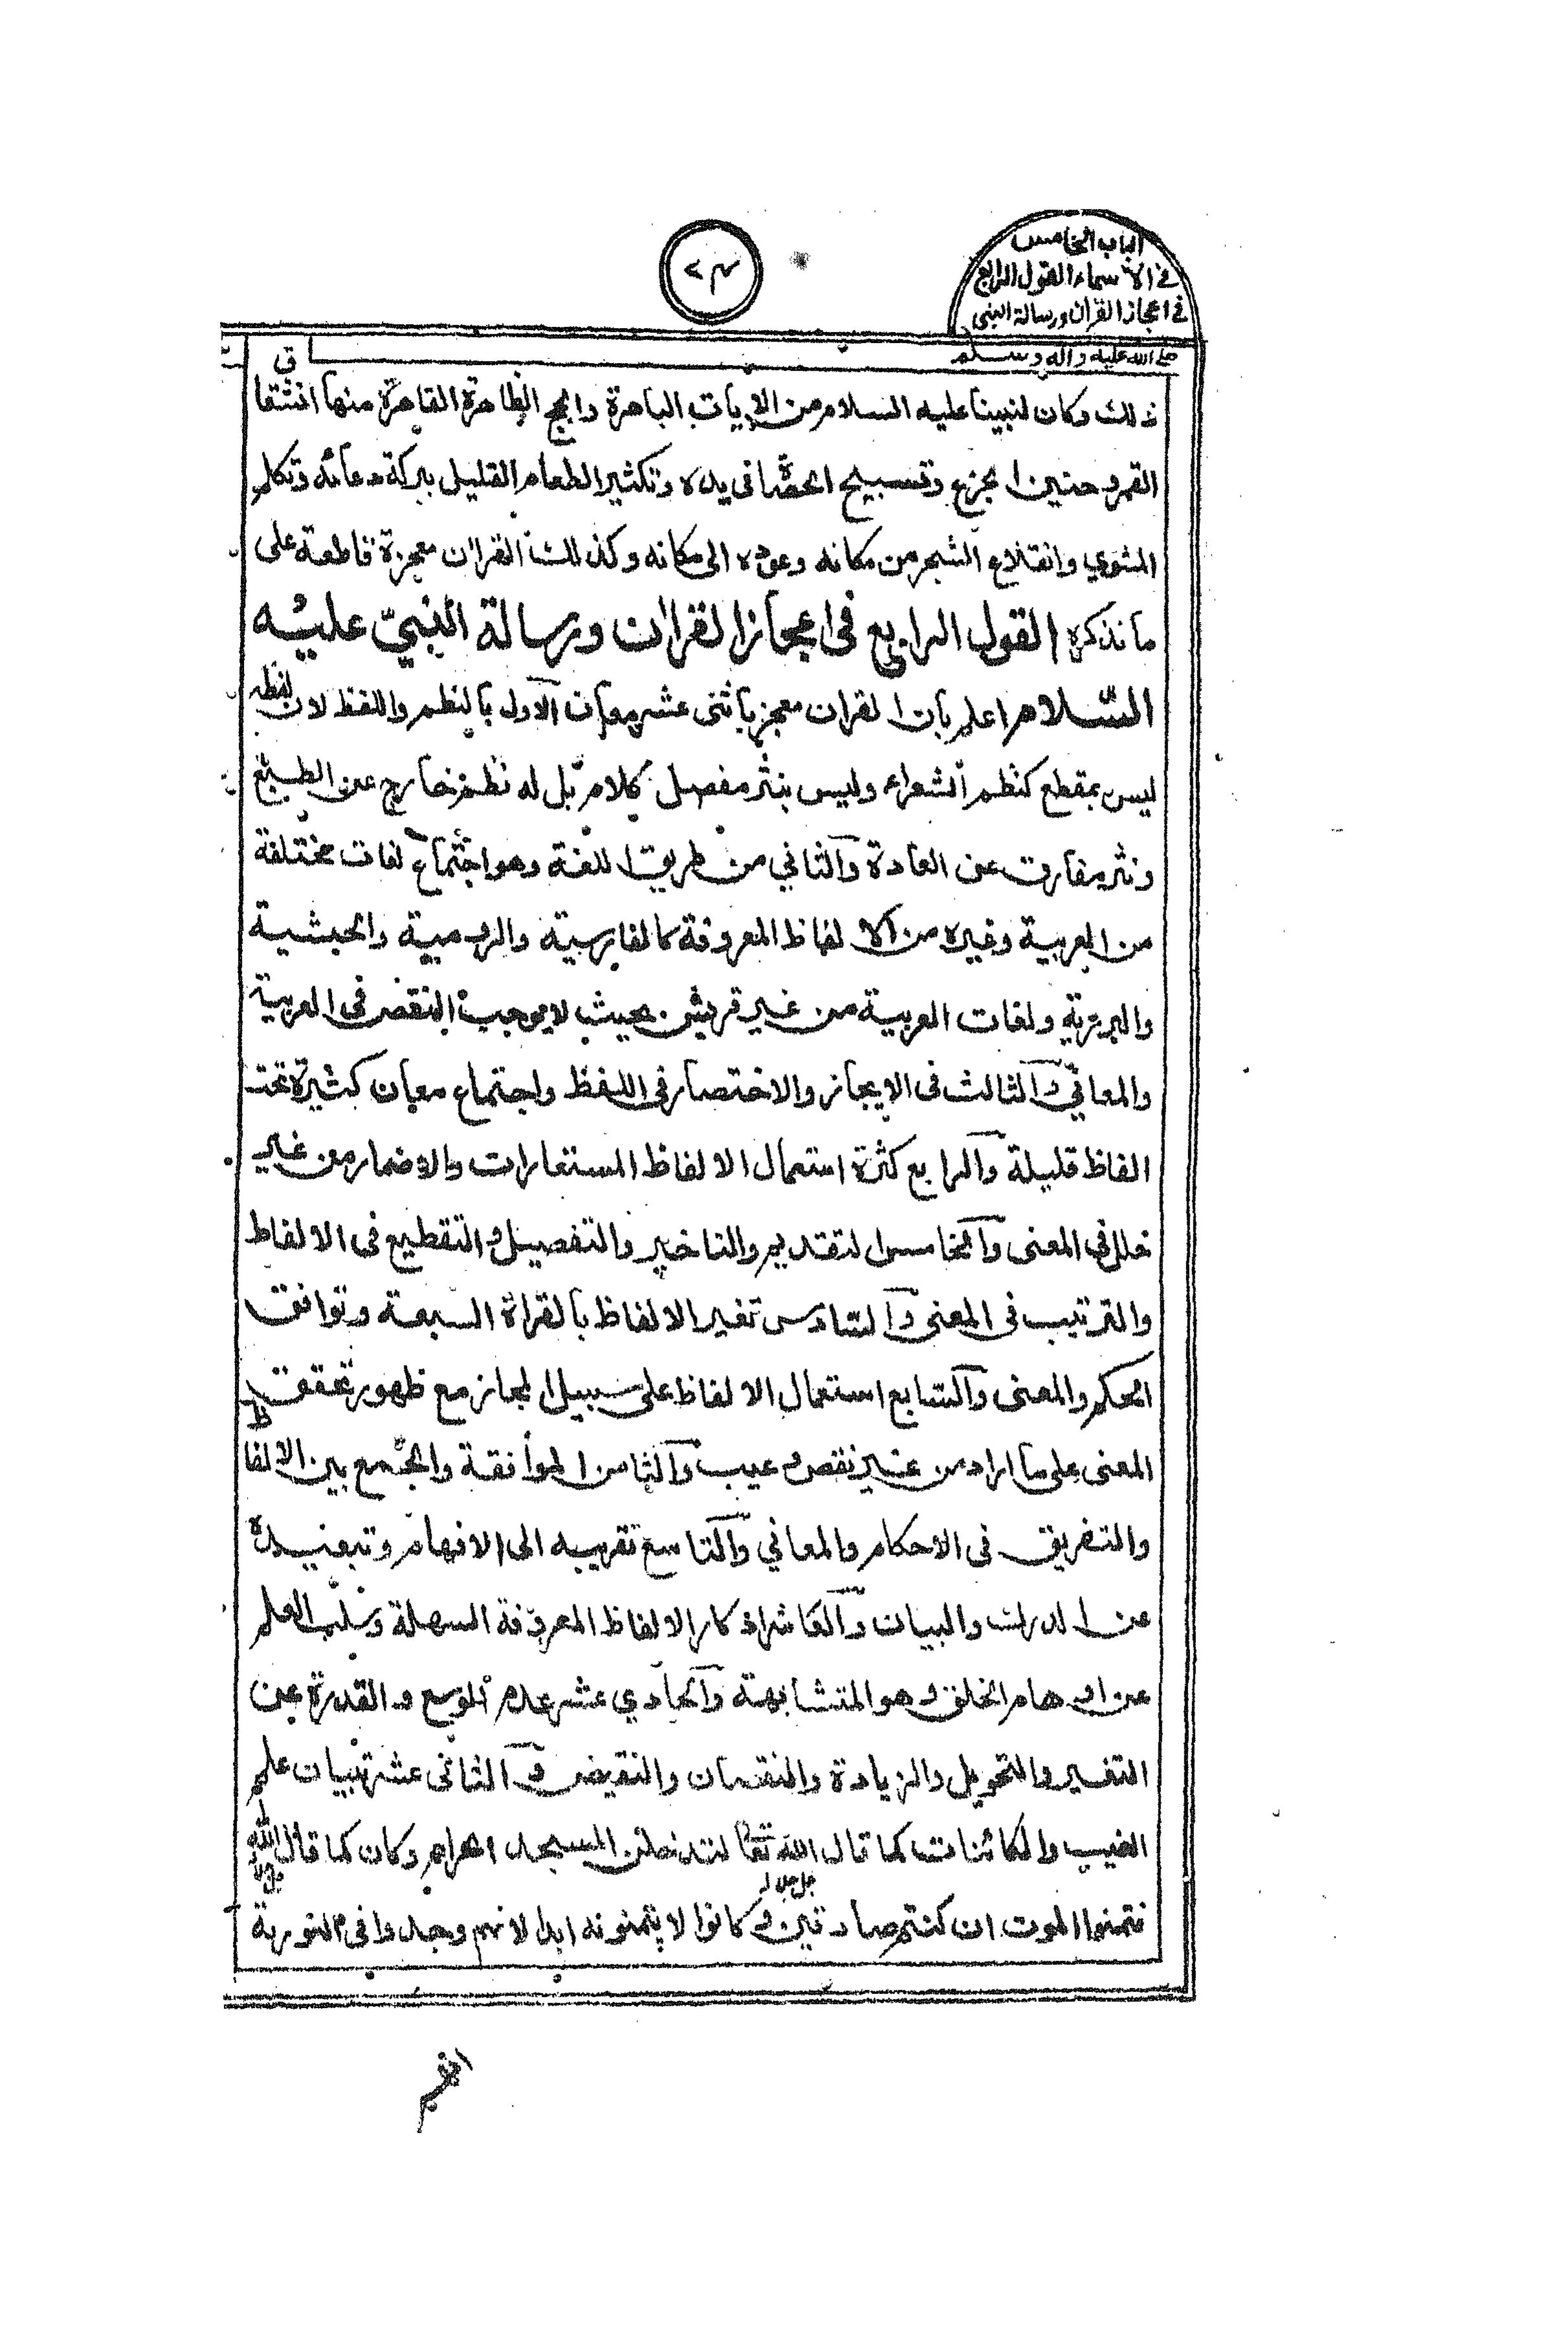 الباب الخامس
في الاسماء القول الرابع
في اعجاز القران ورسالة النبى
صلى الله عليه واله وسلم
ذلك وكان لنبينا عليه السلام من الايات الباهرة والحجج الظاهرة القاهرة منها انشقاق
القمر وحنين الجزع وتسبيح الحصاة فى يده وتكثير الطعام القليل ببركة دعائه وتكلم
المشوي وانقلاع الشجر من مكانه وعوده الى مكانه وكذلك القران معجزة قاطعة على
ما نذكره القول الرابع فى اعجاز القران ورسالة النبيّ عليه
السّلام اعلم بان القران معجز باثنى عشر معان الاول بالنظم واللفظ لان لفظه
ليس بمقطع كنظم الشعراء وليس بنثر مفصل ككلام بل له نظم خارج عن الطبع
ونثر مفارق عن العادة والثاني من طريق اللغة وهو اجتماع لغات مختلفة
من العربية وغيره من الالفاظ المعروفة كالفارسية والرومية والحبشية
والبربرية ولغات العربية من غير قريش بحيث لا يوجب النقض فى العربية
والمعاني والثالث فى الايجاز والاختصار فى اللفظ واجتماع معان كثيرة تحت
الفاظ قليلة والرابع كثرة استعمال الالفاظ المستعارات والاضمار من غير
خلل فى المعنى والخامس التقديم والتاخير والتفصيل والتقطيع فى الالفاظ
والترتيب فى المعنى والسادس تغير الالفاظ بالقراة السبعة وتوافق
الحكم والمعنى والسابع استعمال الالفاظ على سبيل المجاز مع ظهور تحقق
المعنى على ما اراد من غير نقص وعيب والثامن الموافقة والجمع بين الالفاظ
والتفريق فى الاحكام والمعاني والتاسع تقريبه الى الافهام وتبعيده
عن الدرك والبيان والعاشر اذكار الالفاظ المعروفة السهلة وسلب العلم
عن اوهام الخلق وهو المتشابهة والحادي عشر عدم الوسع والقدرة عن
التغير والتحويل والزيادة والنقصان والنقيض والثانى عشر تبيان علم
الغيب والكائنات كما قال الله تعالى لتدخلن المسجد الحرام وكان كما قال الله
جل جلاله
فتمنوا الموت ان كنتم صادقين وكانوا لا يتمنونه ابدا لانهم وجدوا فى التورية